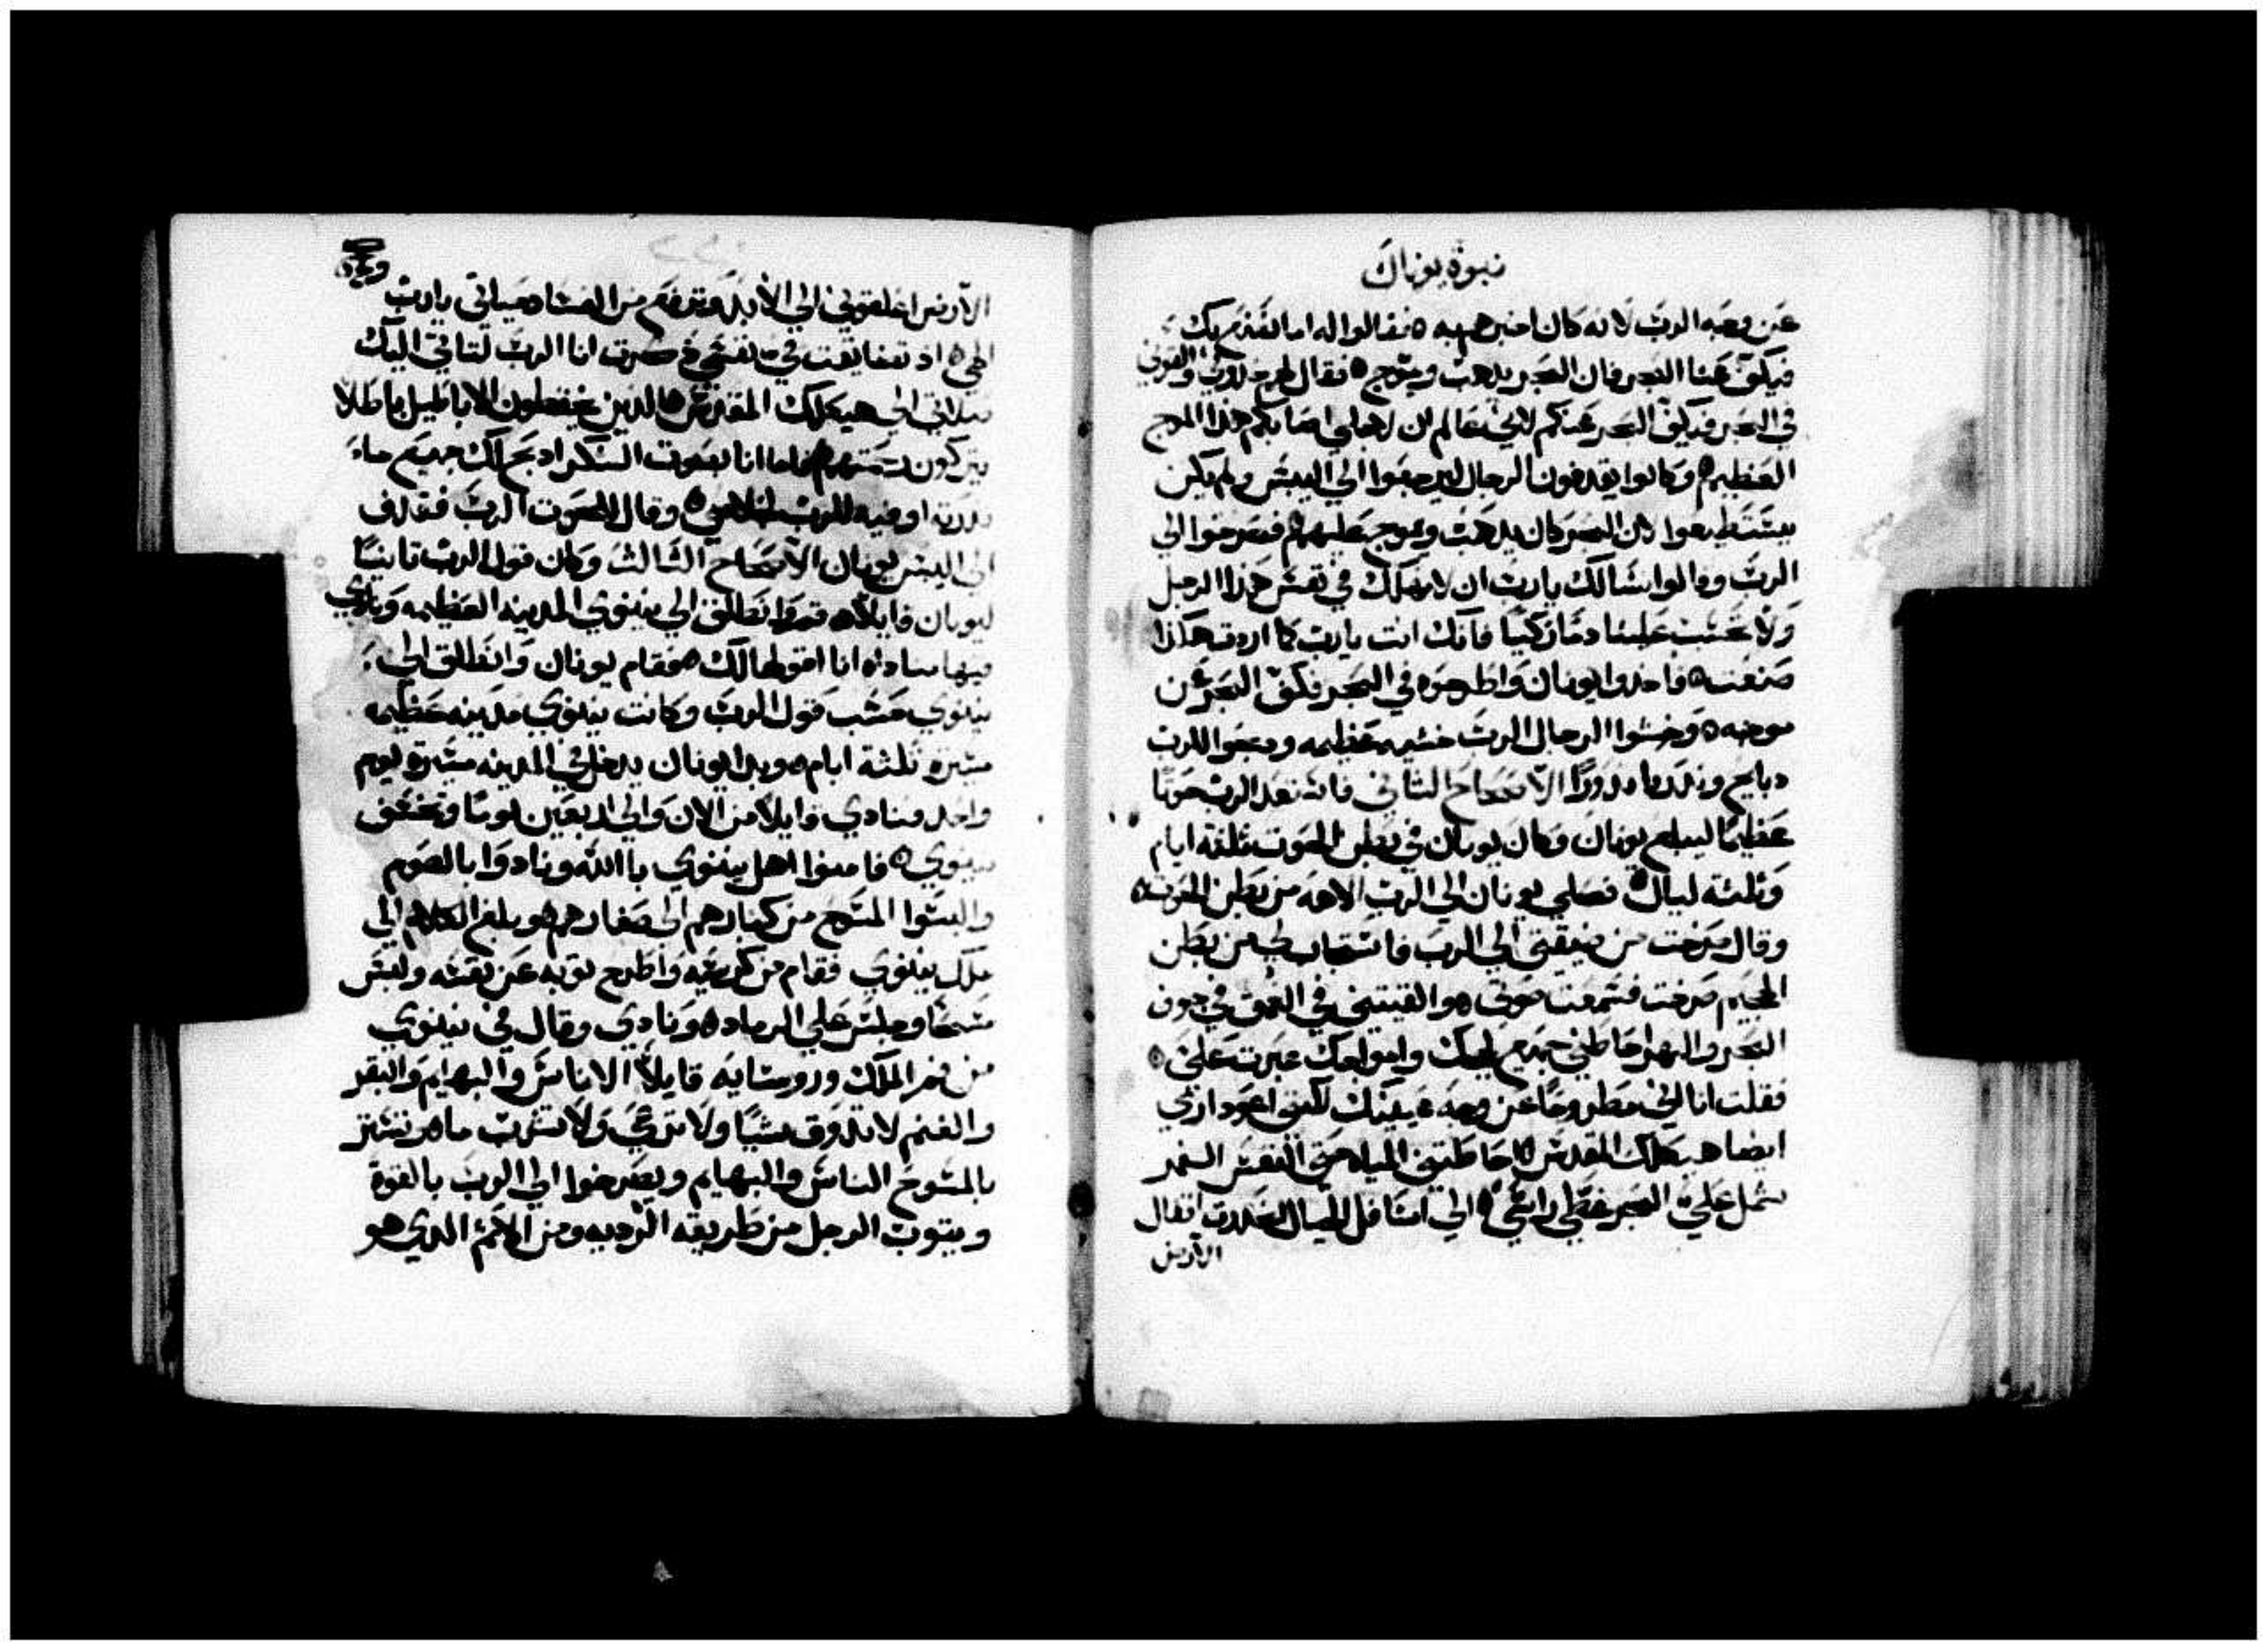 نبوة يونان
عن وجه الرب لانه كان اخبرهم به ه فقالوا له اما نصنع بك
فيكف عنا البحر فان البحر يذهب ويتوج ه فقال لهم خذوني والقوني
في البحر فيكف البحر عنكم لاني عالم ان لاجلي اصابكم هذا الموج
العظيم ه وكانوا يقدفون الرجال ليرجعوا الي اليبس ولم يكن
يستطيعوا لان البحر كان يذهب ويموج عليهم ه فصرخوا الي
الرب وقالوا نسالك يارب ان لا نهلك في نفس هذا الرجل
ولا تحسب علينا دما زكيا فانك انت يارب كما اردت هكذا
صنعت ه فاخدوا يونان واطرحوه في البحر فكف البحر عن
موجه ه وخشوا الرجال الرب خشيه عظيمه ودبحوا للرب
دبايح وندروا ندورا الاصحاح التاني فاستعد الرب حوتا
عظيما ليبلع يونان وكان يونان في بطن الحوت تلتة ايام
وتلتة ليال ه فصلي يونان الي الرب الاهه من بطن الحوت ه
وقال صرخت من ضيقتي الي الرب فاستجاب لي من بطن
الجحيم صرخت فسمعت صوتي ه والقيتني في العمق في جوف
البحر والنهر احاطني جميع لججك وامواجك عبرت علي ه
فقلت انا اني مطروحا عن وجه عينيك لكنني اعود اري
ايضا هيكلك المقدس ه احاطتني المياه حتي النفس الغمر
شمل علي البحر غطي راسي ه الي اسافل الجبال انحدرت اقفال
الارض
الارض اغلقوني الي الابد وترفع من الفساد حياتي يارب
الهي ه اد تضايقت في نفسي دكرت انا الرب لتاتي اليك
صلاتي الي هيكلك المقدس ه الدين يحفظون الاباطيل باطلا
يتركون رحمتهم ه فاما انا بصوت الشكر ادبح لك جميع ما
ندرته اوفيه للرب لخلاصي ه وقال للحوت الرب فقدف
الي اليبس يونان الاصحاح التالت وكان قول الرب تانيا
ليونان قايلا ه قم وانطلق الي نينوي المدينه العظيمه ونادي
فيها مناداه انا اقولها لك ه فقام يونان وانطلق الي
نينوي حسب قول الرب وكانت نينوي مدينه عظيمه
مسيره تلتة ايام ه وبدا يونان يدخل في المدينه مسيرة يوم
واحد ونادي قايلا من الان والي اربعين يوما وتخسف
نينوي ه فامنوا اهل نينوي باالله ونادوا بالصوم
والبسوا المسوح من كبارهم الي صغارهم ه وبلغ الكلام الي
ملك نينوي فقام من كرسيه واطرح توبه عن نفسه ولبس
مسحا وجلس علي الرماد ه ونادي وقال في نينوي
من فم الملك وروسايه قايلا الاناس والبهايم والبقر
والغنم لا تدوق شيا ولا ترعي ولا تشرب ما ه وتستتر
بالمسوح الناس والبهايم ويصرخوا الي الرب بالقوة
ويتوب الرجل من طريقه الرديه ومن الاتم الدي هو